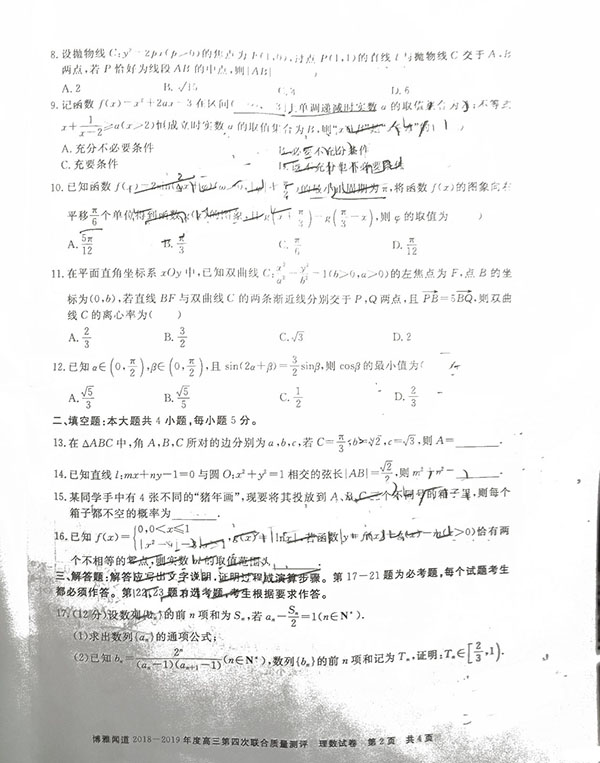 8.设抛物线C:y²=2px(p>0)的焦点为F(1,0),过点P(1,1)的直线l与抛物线C交于A,B
两点,若P恰好为线段AB的中点,则|AB|
A.2 B.√15 C. D.6
9.记函数f(x)=x²+2ax-3在区间 上单调递减时实数a的取值集合为 ;不等式
x+1/(x-2)≥a(x>2)恒成立时实数a的取值集合为B,则
A.充分不必要条件 B.必要不充分条件
C.充要条件 D.既不充分也不必要条件
10.已知函数f(x)=2sin 的最小正周期为π,将函数f(x)的图象向右
平移π/6个单位得到函数 的图象,且g(x+π/3)=g(π/3-x),则φ的取值为( )
A.5π/12 B.π/3 C.π/6 D.π/12
11.在平面直角坐标系xOy中,已知双曲线C:x²/a²-y²/b²=1(b>0,a>0)的左焦点为F,点B的坐
标为(0,b),若直线BF与双曲线C的两条渐近线分别交于P,Q两点,且PB=5BQ,则双曲
线C的离心率为( )
A.2/3 B.3/2 C.√3 D.2
12.已知α∈(0,π/2),β∈(0,π/2),且sin(2α+β)=3/2sinβ,则cosβ的最小值为(
A.√5/3 B.√5/5 C.1/2 D.2/3
二、填空题:本大题共4小题,每小题5分。
13.在△ABC中,角A,B,C所对的边分别为a,b,c,若C=π/3,b=√2,c=√3,则A=______.
14.已知直线l:mx+ny-1=0与圆O:x²+y²=1相交的弦长|AB|=√2/2,则m²+n²=______.
15.某同学手中有4张不同的“猪年画”,现要将其投放到A、B、C三个不同号的箱子里,则每个
箱子都不空的概率为______.
16.已知f(x)={0,0<x≤1 g(x)=|lnx|,若函数 恰有两
个不相等的零点,则实数 的取值范围为
三、解答题:解答应写出文字说明,证明过程或演算步骤。第17-21题为必考题,每个试题考生
都必须作答。第22、23题为选考题,考生根据要求作答。
17.(12分)设数列{aₙ}的前n项和为Sₙ,若aₙ-Sₙ/2=1(n∈N*).
(1)求出数列{aₙ}的通项公式;
(2)已知bₙ=2ⁿ/((aₙ-1)(aₙ₊₁-1))(n∈N*),数列{bₙ}的前n项和记为Tₙ,证明:Tₙ∈[2/3,1).
博雅闻道2018-2019年度高三第四次联合质量测评 理数试卷 第2页 共4页